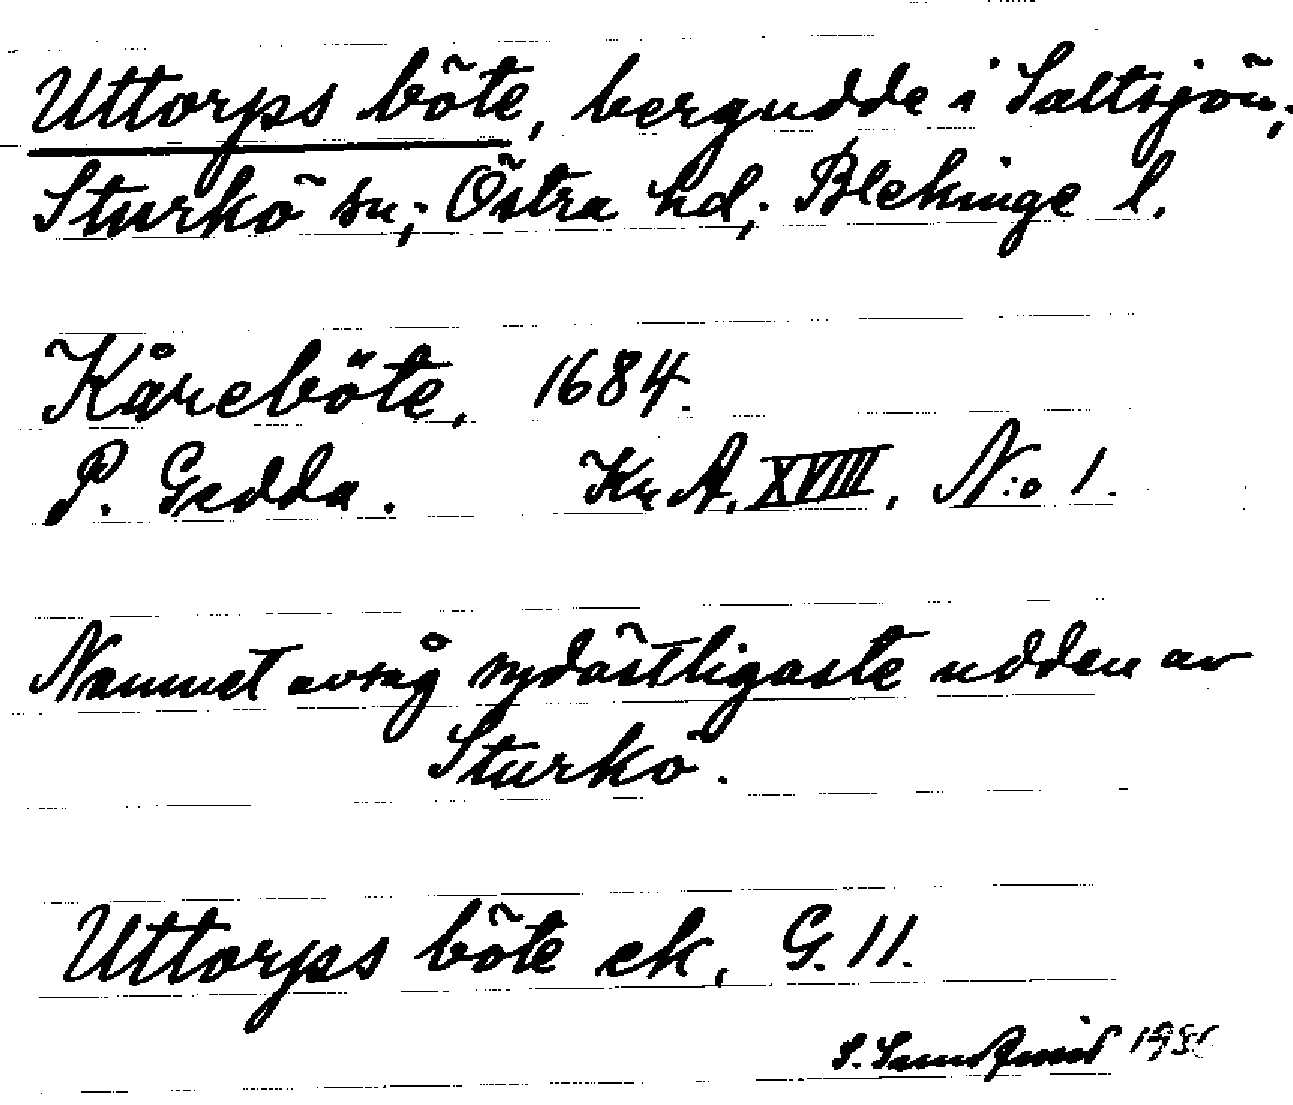 Uttorps böte, bergudde i Saltsjön;
Sturkö sn; Östra hd; Blekinge l.
Kåreböte. 1684.
P. Gedda. Kr A. XVIII, N:o 1.
Namnet avsåg sydöstligaste udden av
Sturkö.
Uttorps böte ek. G. 11.
S.